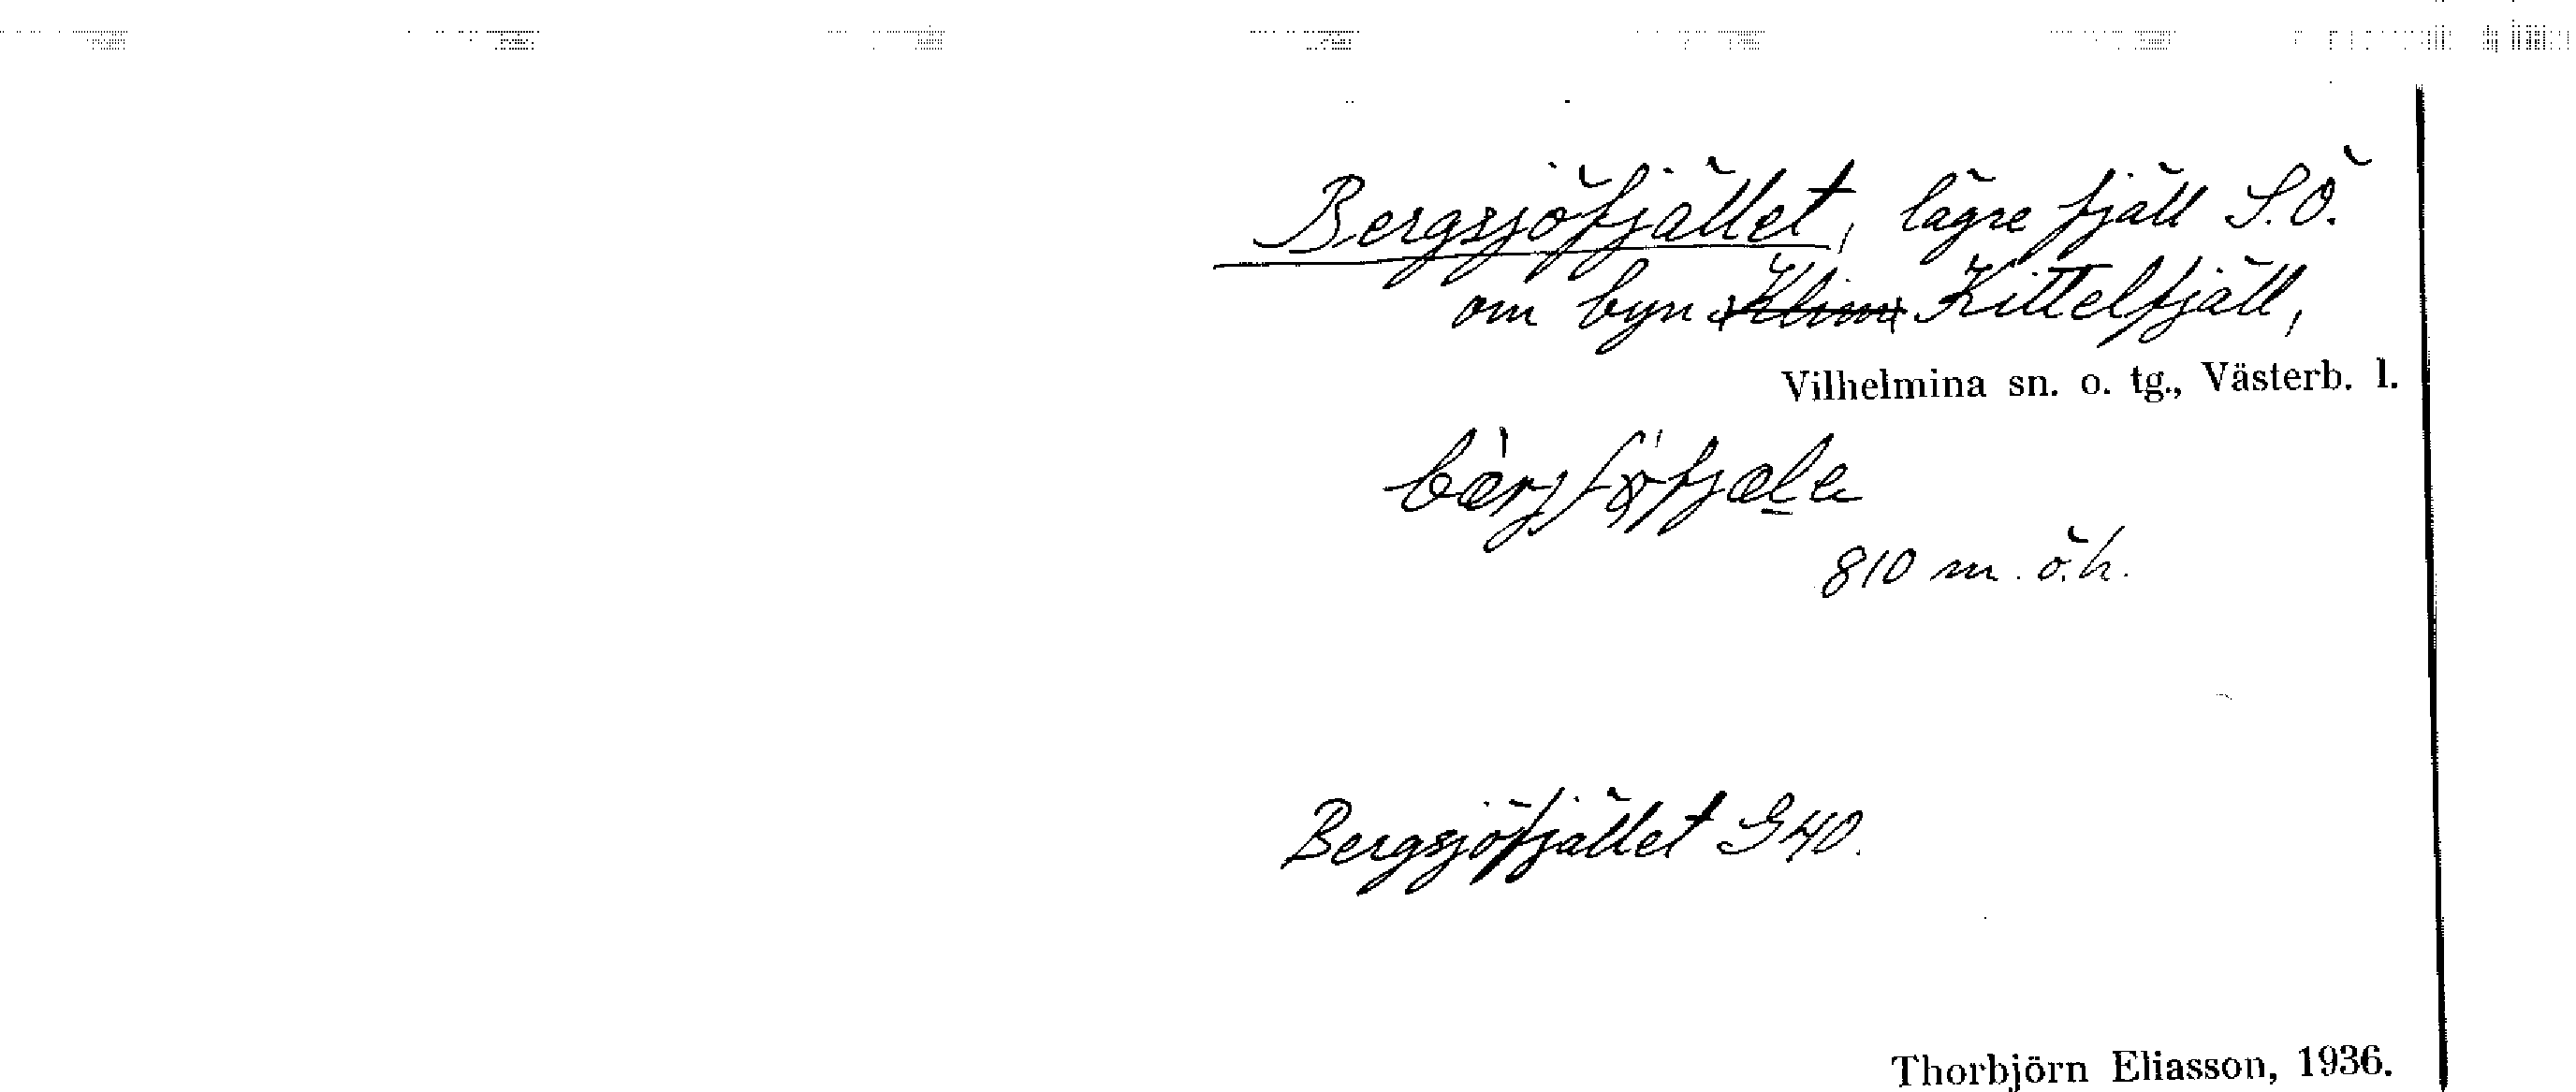 Bergsjöfjället, lägre fjäll S.Ö.
om byn Klim Kittelfjäll,
Vilhelmina sn. o. tg., Västerb. l.
810 m. ö.h.
Bergsjöfjället G40.
Thorbjörn Eliasson, 1936.